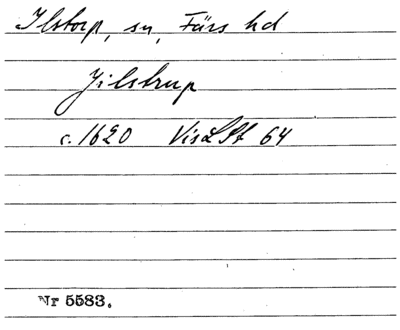 Ilstorp, sn, Färs hd
Jilstrup
c. 1620 VisLSt 64
Nr 5583.